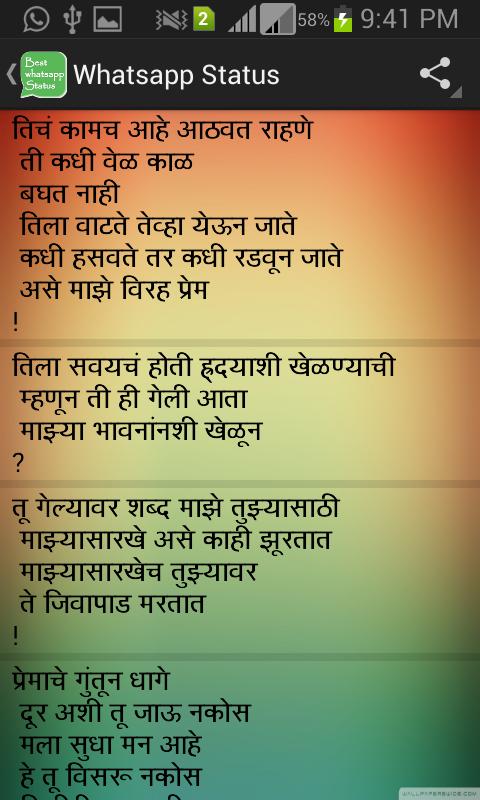 2
58%
9:41 PM
Best
whatsapp
Status
Whatsapp Status
तिचं कामच आहे आठवत राहणे
ती कधी वेळ काळ
बघत नाही
तिला वाटते तेव्हा येऊन जाते
कधी हसवते तर कधी रडवून जाते
असे माझे विरह प्रेम
!
तिला सवयचं होती ह्रदयाशी खेळण्याची
म्हणून ती ही गेली आता
माझ्या भावनांनशी खेळून
?
तू गेल्यावर शब्द माझे तुझ्यासाठी
माझ्यासारखे असे काही झूरतात
माझ्यासारखेच तुझ्यावर
ते जिवापाड मरतात
!
प्रेमाचे गुंतून धागे
दूर अशी तू जाऊ नकोस
मला सुधा मन आहे
हे तू विसरू नकोस
WALLPAPERSWIDE.COM